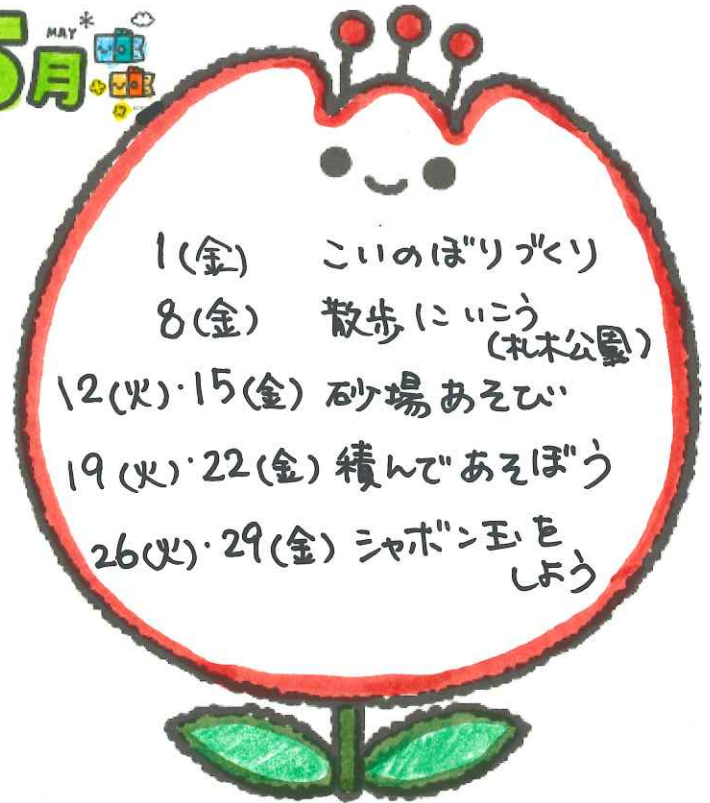 5月
MAY
1(金) こいのぼりづくり
8(金) 散歩にいこう
(札木公園)
12(火)・15(金) 砂場あそび
19(火)・22(金)積んであそぼう
26(火)・29(金) シャボン玉を
しよう